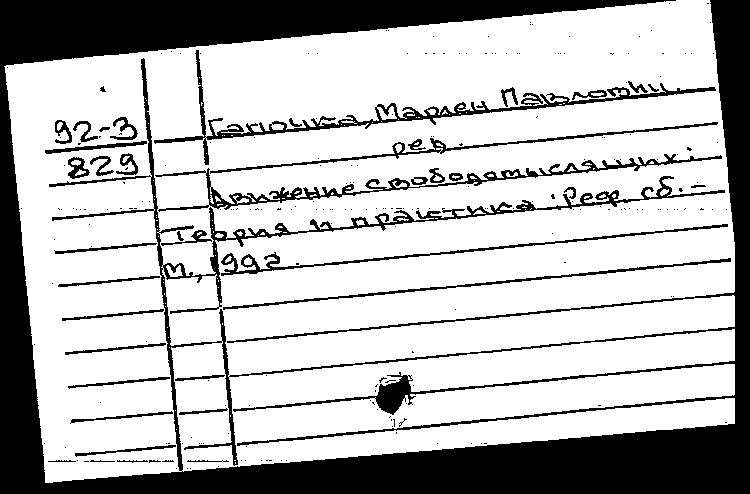 92-3
829
Гапочка, Марлен Павлович.
ред.
Движение свободомыслящих:
Теория и практика: Реф. сб. –
М., 1992.